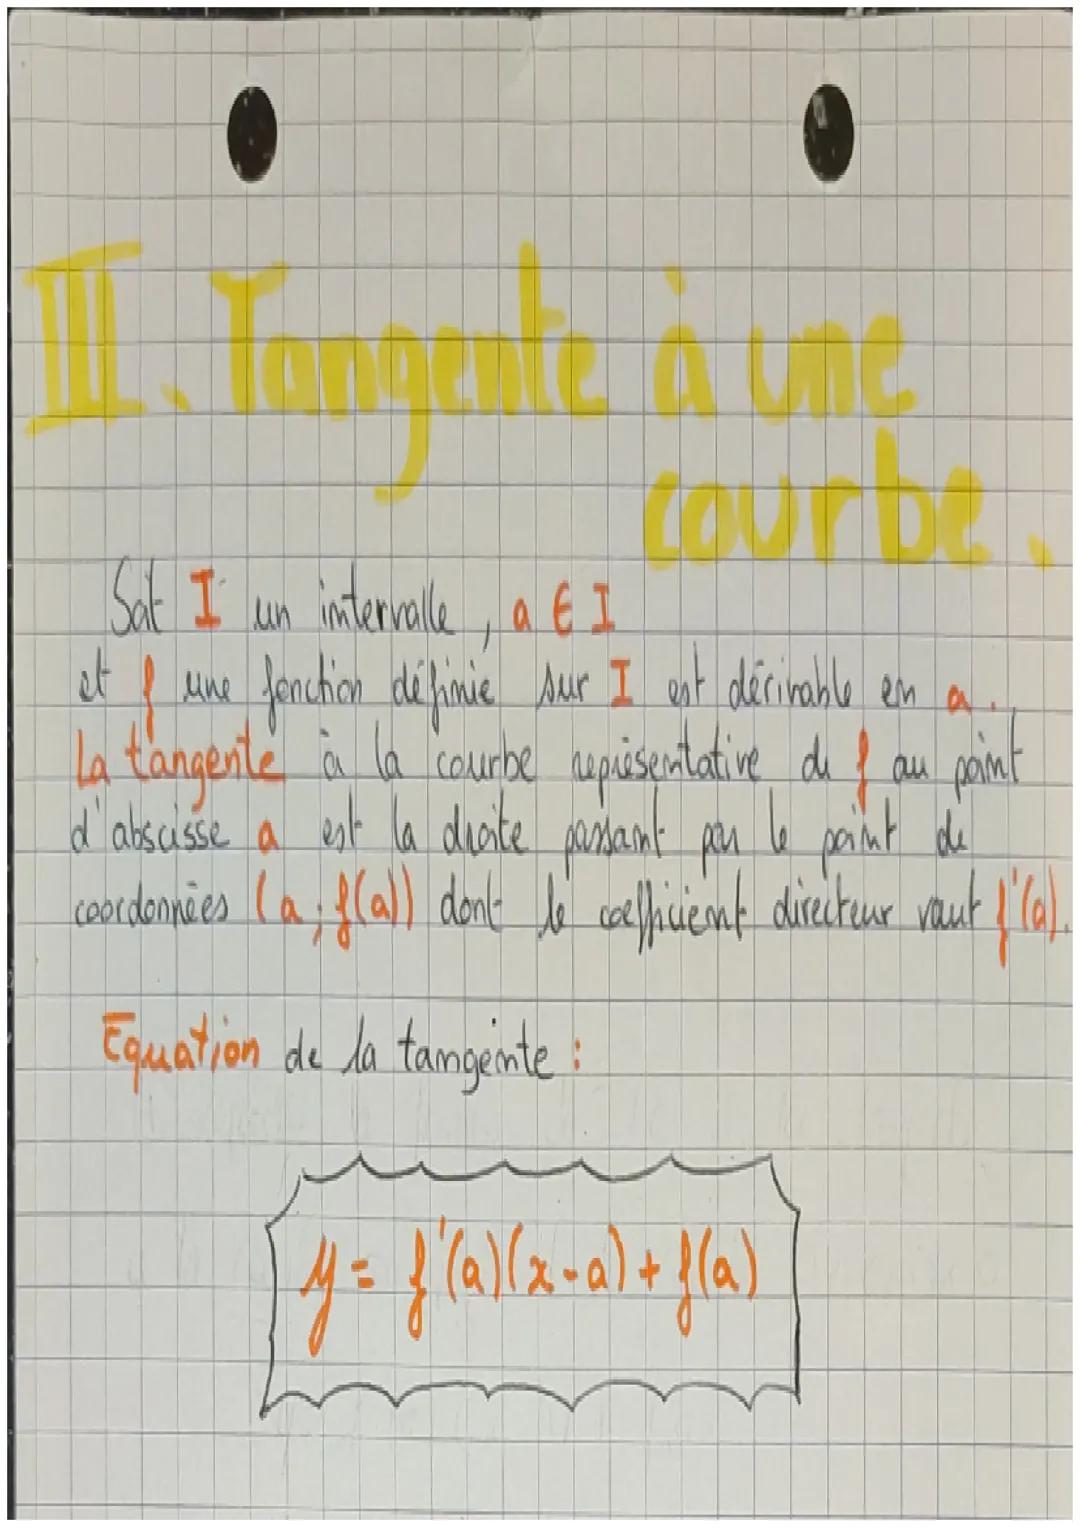 III. Tangente à une
courbe.
Soit I un intervalle, a ∈ I
et f une fonction définie sur I est dérivable en a.
La tangente à la courbe représentative de f au point
d'abscisse a est la droite passant par le point de
coordonnées (a; f(a)) dont le coefficient directeur vaut f'(a).
Equation de la tangente :
y = f'(a)(x-a) + f(a)